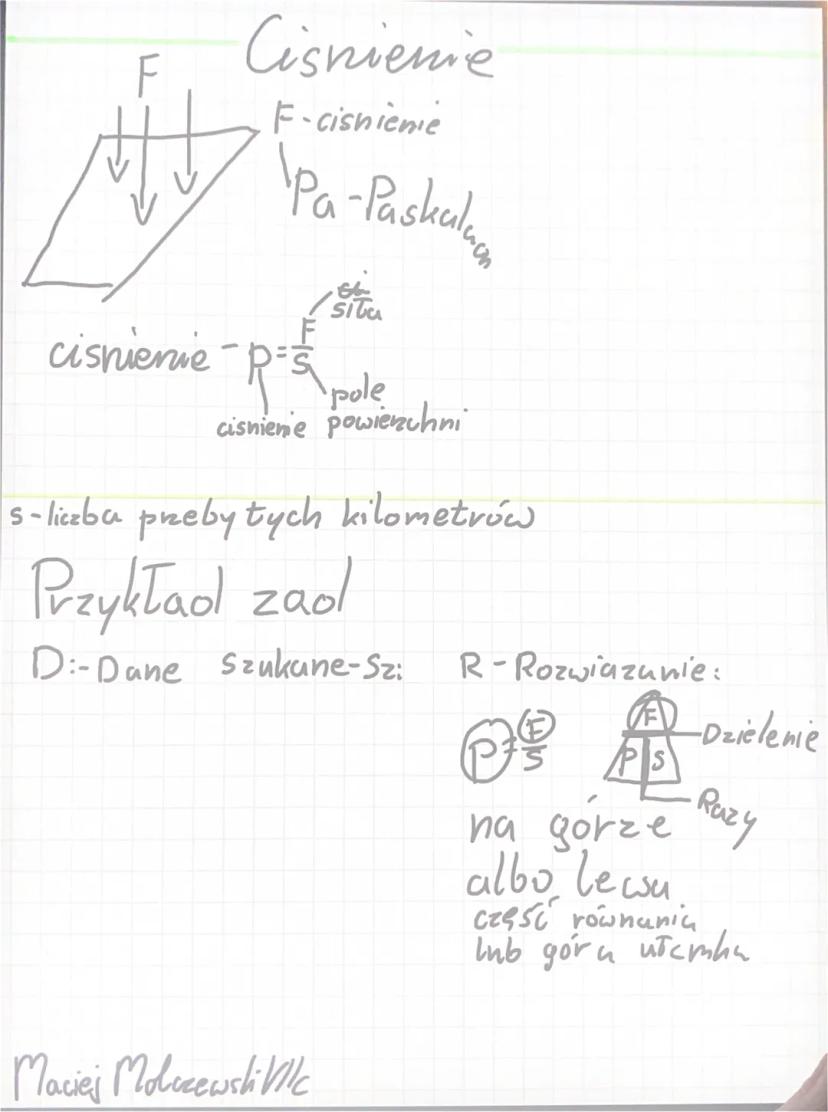 Cisnienie
F
F-cisnienie
Pa-Paskalach
siła
cisnienie - p = F/S
pole
cisnienie powierzchni
s-liczba przebytych kilometrów
Przykład zad
D:-Dane Szukane-Sz: R-Rozwiazanie:
P = F/S
F
P S
Dzielenie
Razy
na górze
albo lewa
część równania
lub góra ułamka
Maciej Molczewski